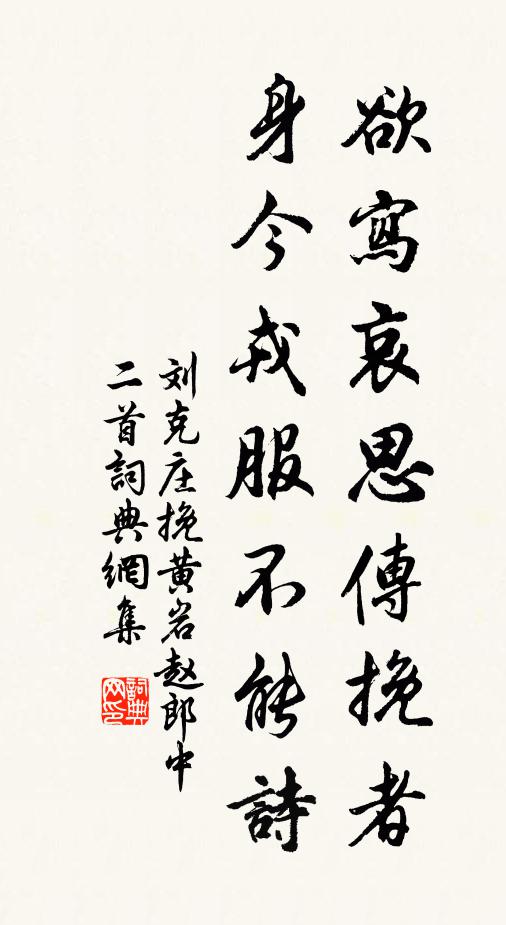 欲寫哀思傳挽者
身今戎服不能詩
刘克庄挽黄岩赵郎中
二首詞典網集
詞典
网印